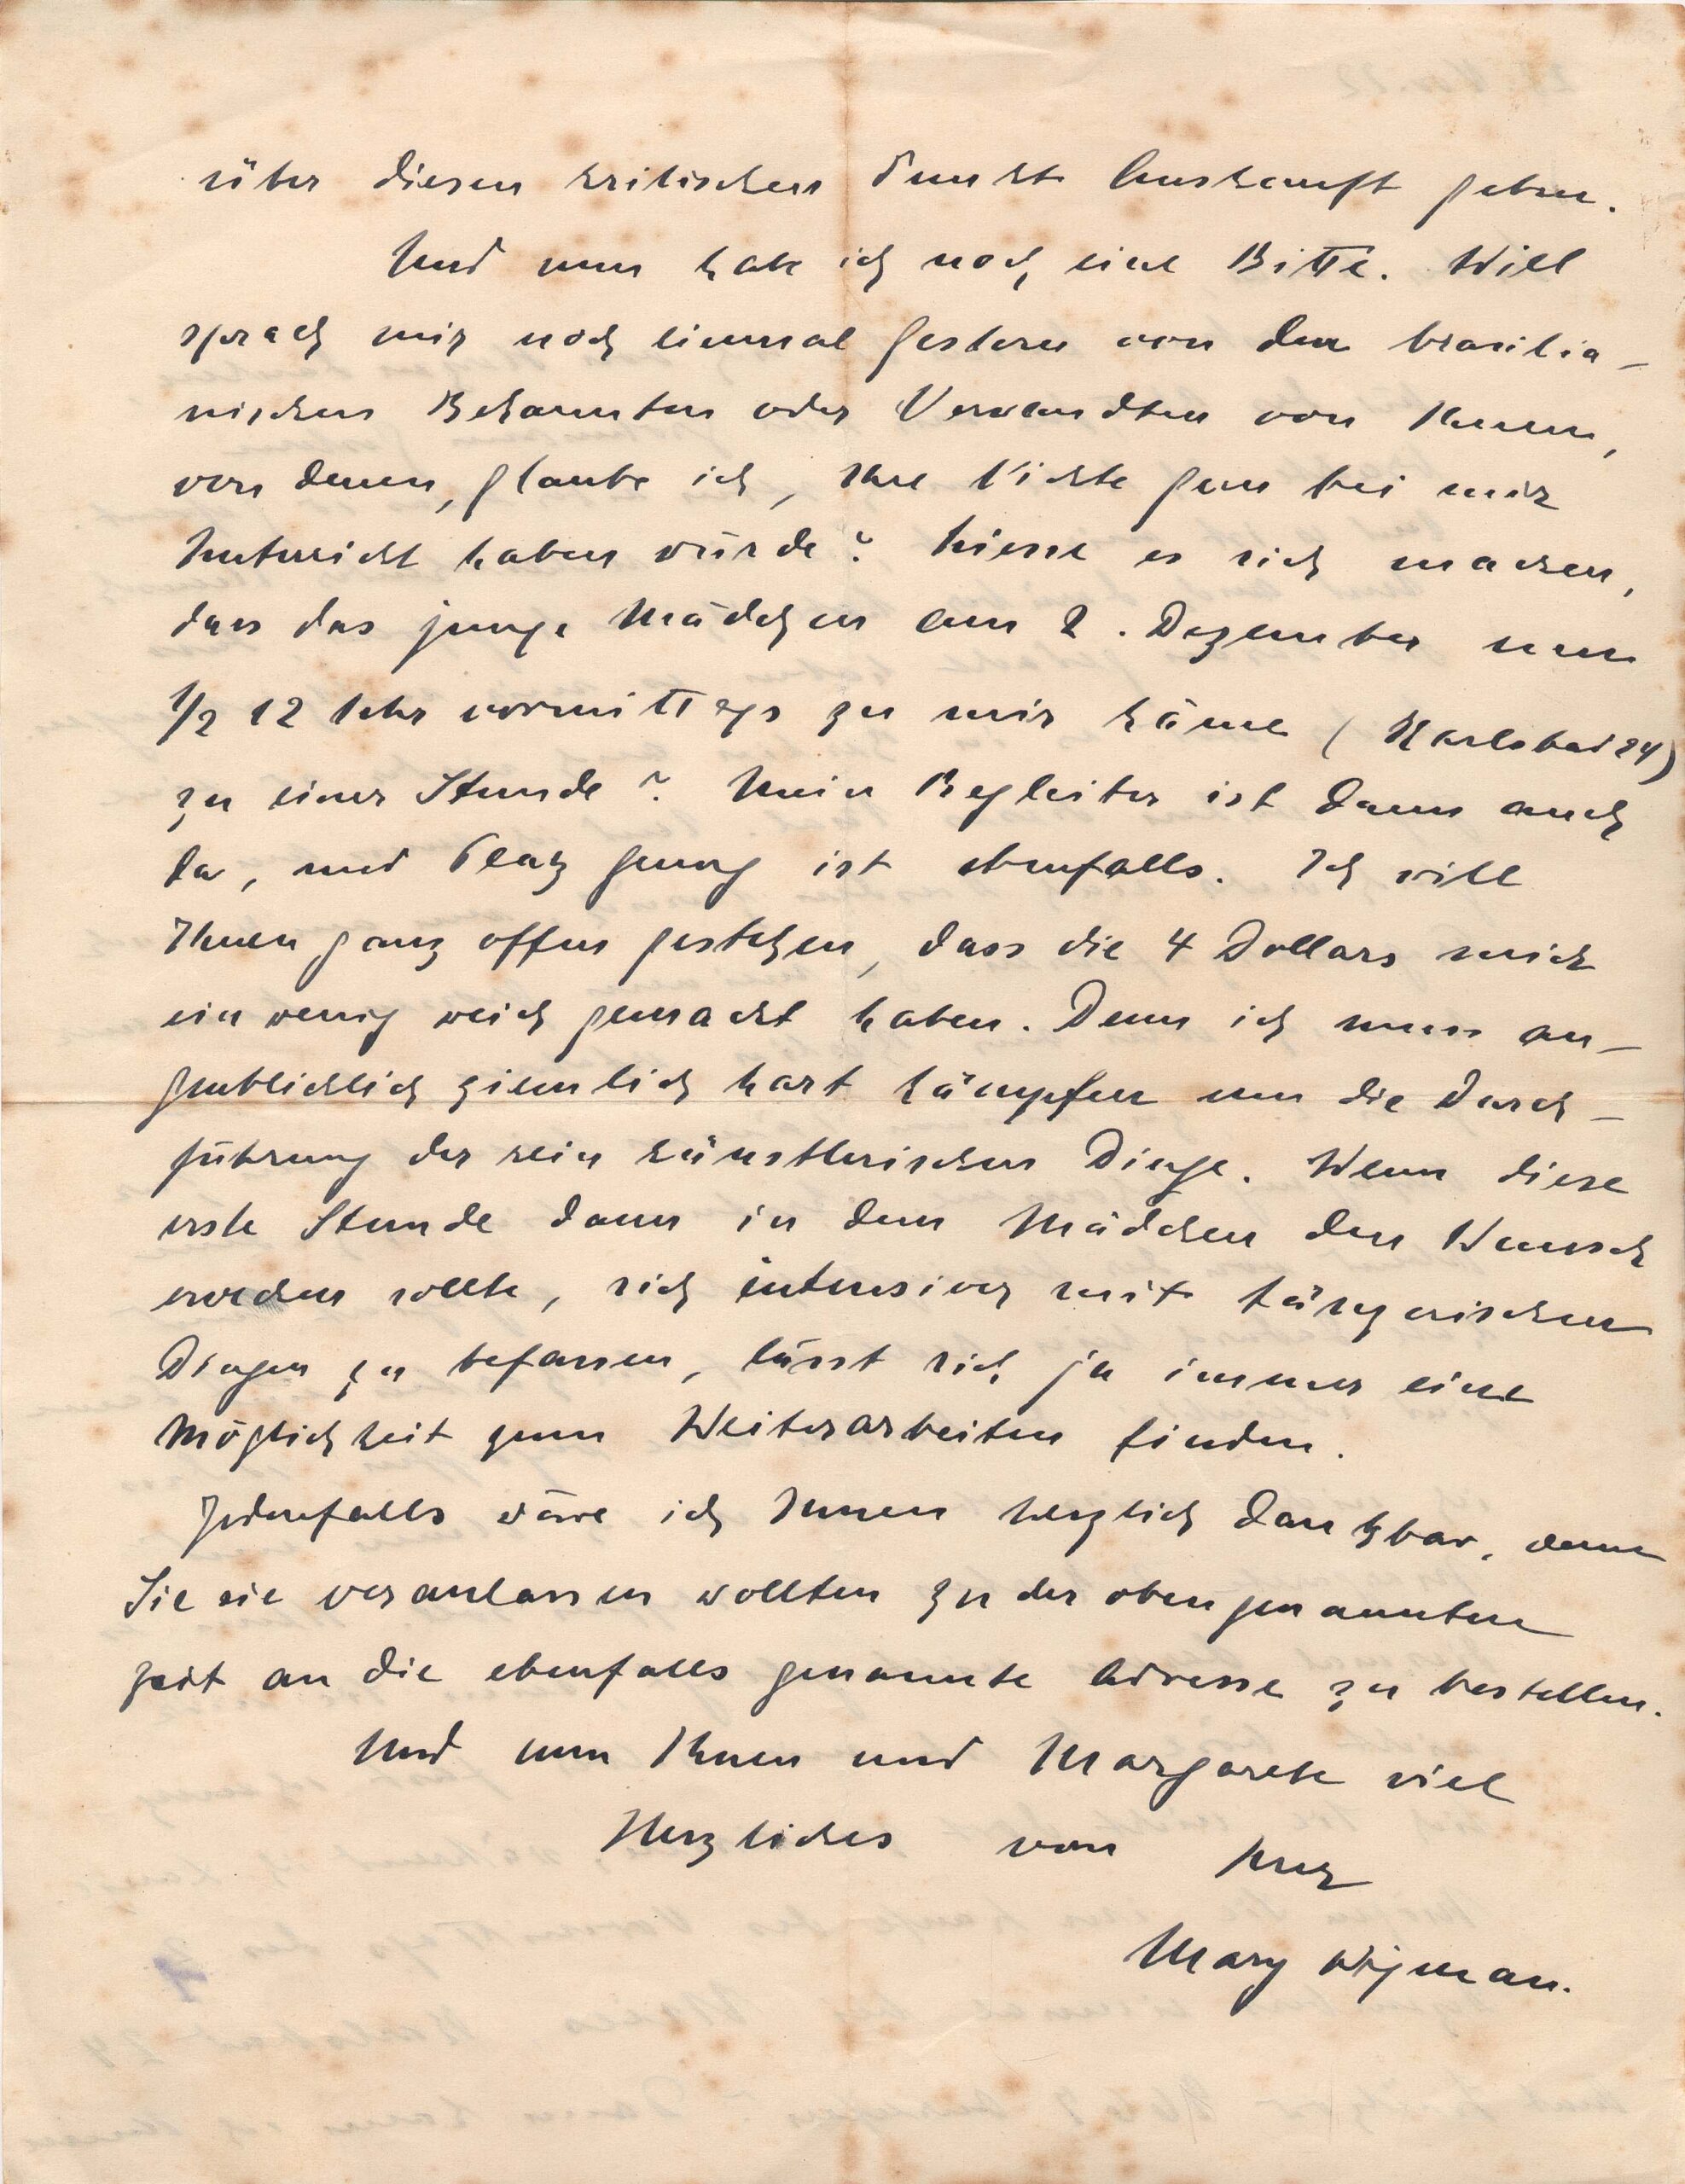 über diesen kritischen Punkt Auskunft geben.
Und nun habe ich noch eine Bitte. Will
sprach mir noch einmal gestern von den brasilia-
nischen Bekannten oder Verwandten von Ihnen,
von denen, glaube ich, Ihre Nichte gern bei mir
Unterricht haben würde? Liesse es sich machen,
dass das junge Mädchen am 2. Dezember um
1/2 12 Uhr vormittags zu mir käme (Karlsbad 24)
zu einer Stunde? Mein Begleiter ist dann auch
da, und Platz genug ist ebenfalls. Ich will
Ihnen ganz offen gestehen, dass die 4 Dollars mich
ein wenig weich gemacht haben. Denn ich muss au-
genblicklich ziemlich hart kämpfen um die Durch-
führung der rein künstlerischen Dinge. Wenn diese
erste Stunde dann in dem Mädchen den Wunsch
erwecken sollte, sich intensiver mit tänzerischen
Dingen zu befassen, lässt sich ja immer eine
Möglichkeit zum Weiterarbeiten finden.
Jedenfalls wäre ich Ihnen herzlich dankbar, wenn
Sie sie veranlassen wollten zu der oben genannten
Zeit an die ebenfalls genannte Adresse zu bestellen.
Und nun Ihnen und Margarete viel
Herzliches von Ihrer
Mary Wigman.